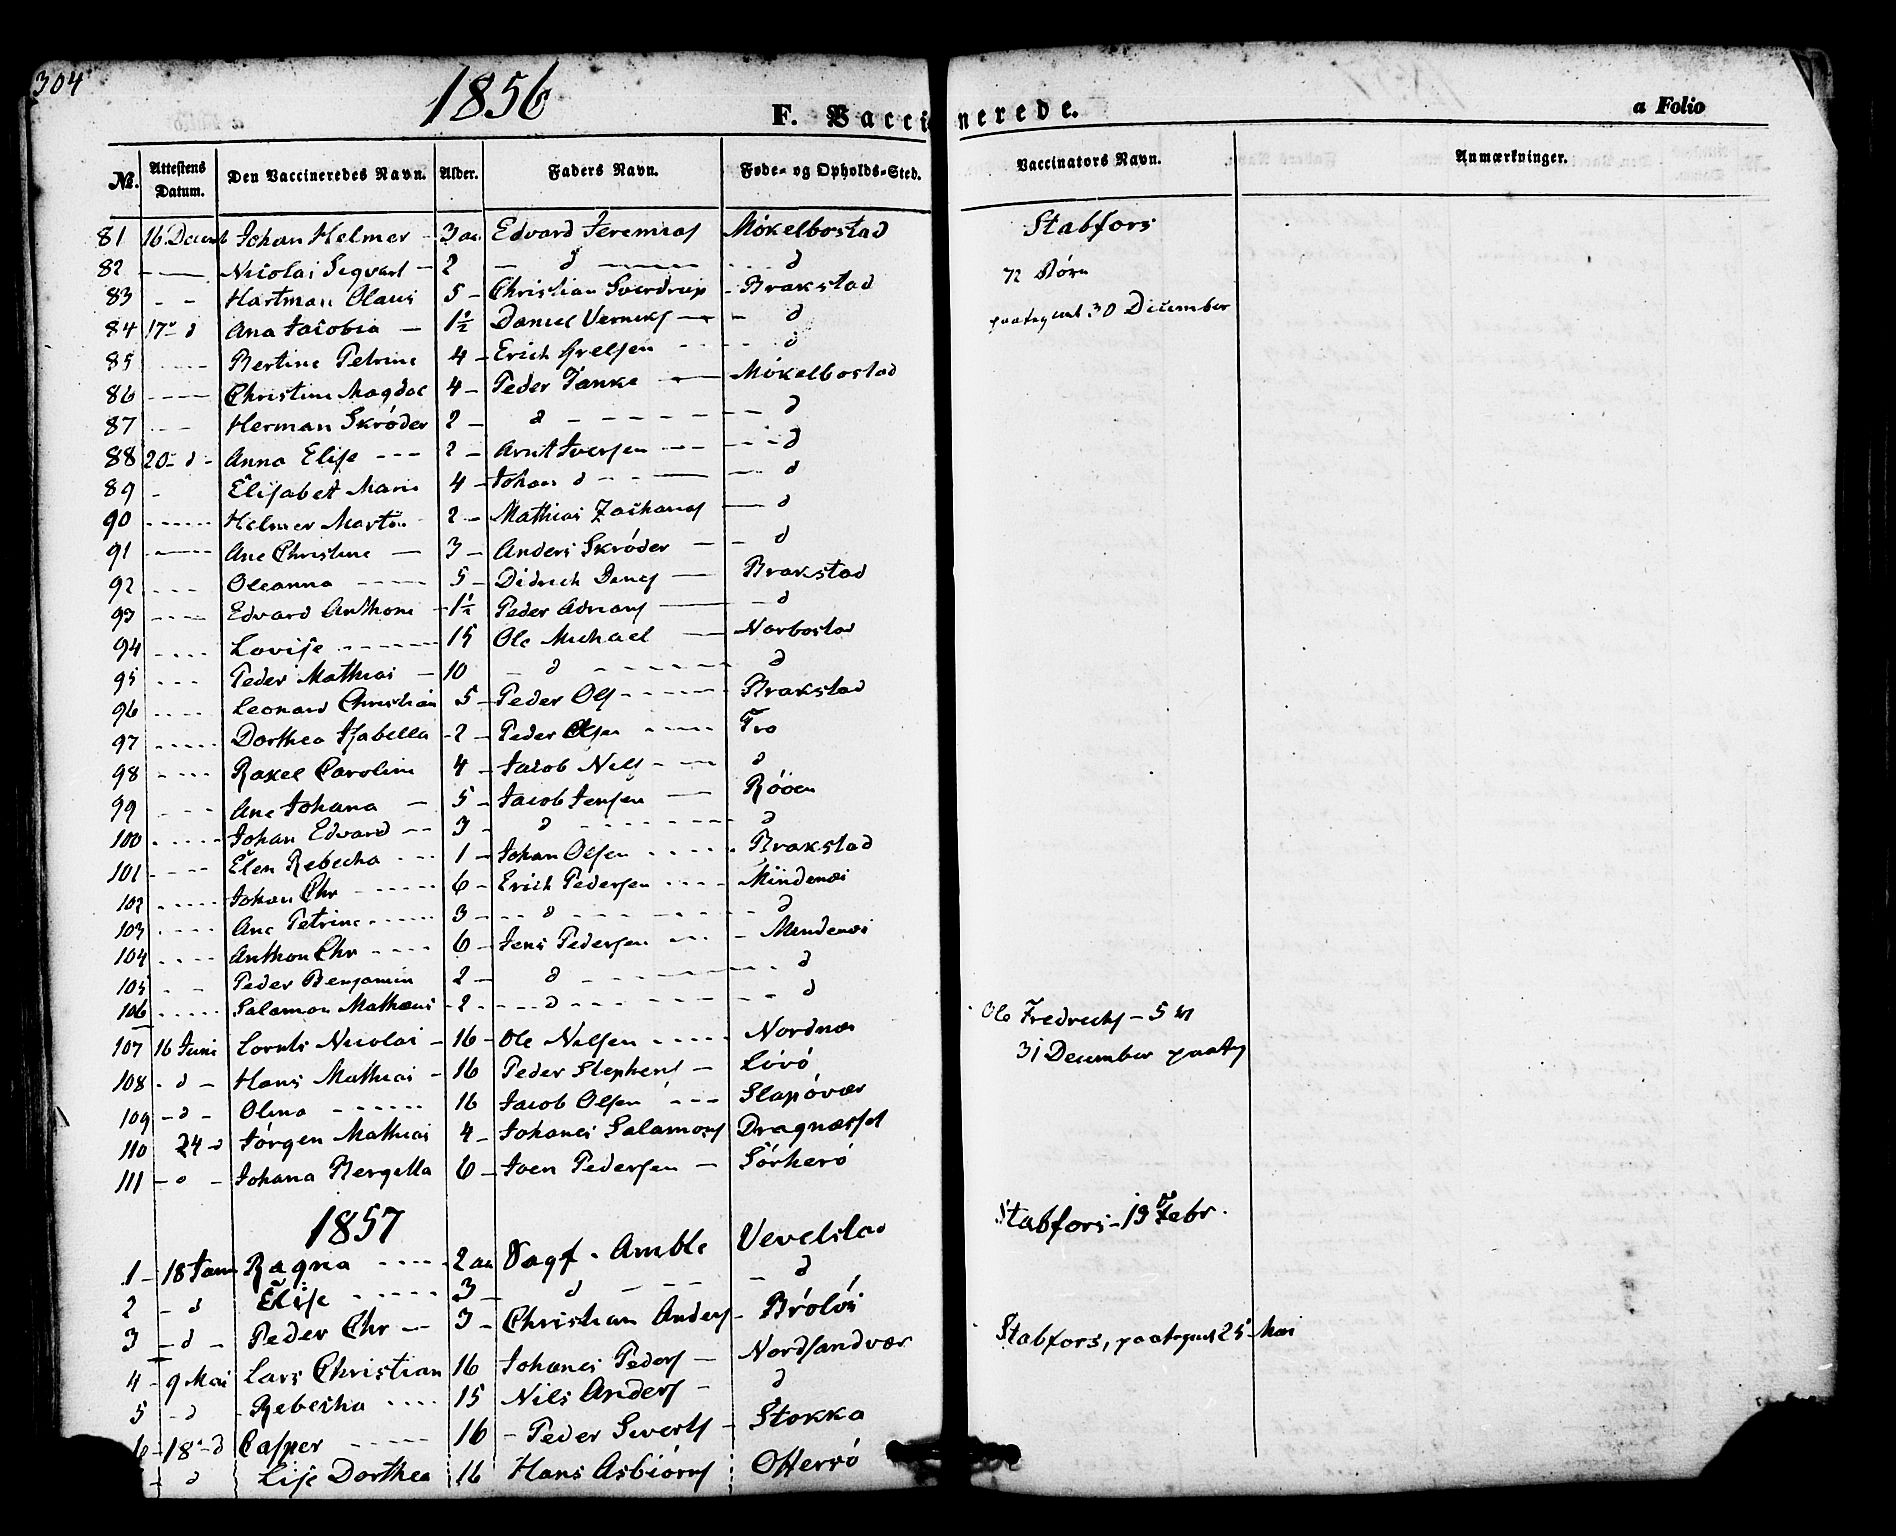 304
1856
F. Vaccinerede.
a Folio
No. Attestens Datum. Den Vaccineredes Navn. Alder. Faders Navn. Føde- og Opholds-Sted. Vaccinators Navn. Anmærkninger.
81 16 Decemb Johan Helmer - 3 aa Edvard Jeremias Mókelbostad Stabfors
82 - — Nicolai Sigvart - 2 — d — d 72 Börn
83 - - Hartman Olaus 5 - Christian Sverdrup - Brakstad
84 17 - d Ana Jacobia — 1½ Daniel Verniks — - d paategnet 30 December
85 - - Bertine Petrine 4 - Erich Grelsen - - d
86 - - Christine Magdal 4 - Peder Zanke — Mókelbostad
87 - - Herman Skróder 2 - d - - - d
88 20 - d - Anna Elise - - - 2 - Arnt Iversen - - d
89 - Elisabet Marie 4 - Johan d - - — d
90 - - Helmer Martin 2 - Mathias Zacharias — d
91 - - Ane Christine — 3 - Anders Skróder — - d
92 - - - Oleanna - - - 5 - Didrich Danes — Brakstad
93 - - - Edvard Anthoni - 1½ Peder Adrians — - d
94 - - - Lovise - - - 15 Ole Michael — Norbostad
95 - - - Peder Mathias - 10 - d - - - d
96 - - - Leonard Christian 5 - Peder Ols - - - Brakstad
97 - - - Dorthea Isabella - 2 - Peder Olsen - - - Tro
98 - - - Rakel Caroline 4 - Jacob Nils - - - d
99 - - - Ane Johana — 5 - Jacob Jensen — Róoen
100 - - - Johan Edvard - - 3 - d - - - d
101 - - - Elen Rebecka - - - 1 - Johan Olsen - - - Brakstad
102 - - - Johan Chr - - - 6 - Erich Pedersen - - - Mindenæs
103 - - - Ane Petrine - - - 3 - - - d - - - d
104 - - - Anthon Chr - - - 6 - Jens Pedersen - - - Mendenæs
105 - - Peder Benjamin 2 — d - - - d
106 - - - Salamon Mathæus - 2 - - - d - - - d
107 16 Juni Lorents Nicolai - 16 - Ole Nilsen - - - Nordnæs Ole Fredrichs - 5
108 - d - Hans Mathias - 16 Peder Stephens - Lóvó 31 December paateg
109 - d - Olena - - - 16 Jacob Olsen - - - Slapóvær
110 24 - d Jórgen Mathias 4 - Johanes Salamons Dragnæsset
111 - d - Johana Bergitta 6 - Joen Pedersen — Sórheró
1857
1 - 18 Janu Ragna - - - 2 aa Amble Vevelstad Stabfors - 19 Febr.
2 - d Elise - - - 3 - d — - d
3 - d - Peder Chr — 3 - Christian Anders - Brólós
4 - 9 Mai Lars Christian 16 Johanes Peders — Nordsandvær Stabfors, paategnet 25 Mai
5 - d - Rebecka - - - 15 Nils Anders - d
6 - 18 - d Casper - - - 16 - Peder Siverts - Stokka
- d Lise Dorthea 16 Hans Asbiórns Otterró